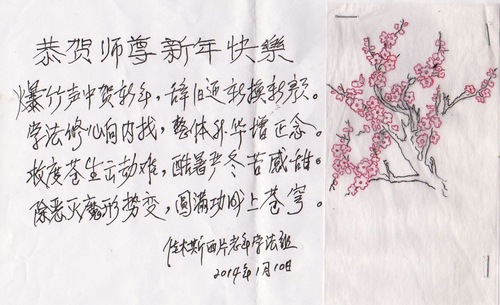 恭贺师尊新年快樂
爆竹声中贺新年，辞旧迎新换新颜。
学法修心向内找，整体升华增正念。
救度苍生出劫难，酷暑严冬苦感甜。
除恶灭魔形势变，圆满功成上苍穹。
佳木斯西片老年学法组
2014年1月10日